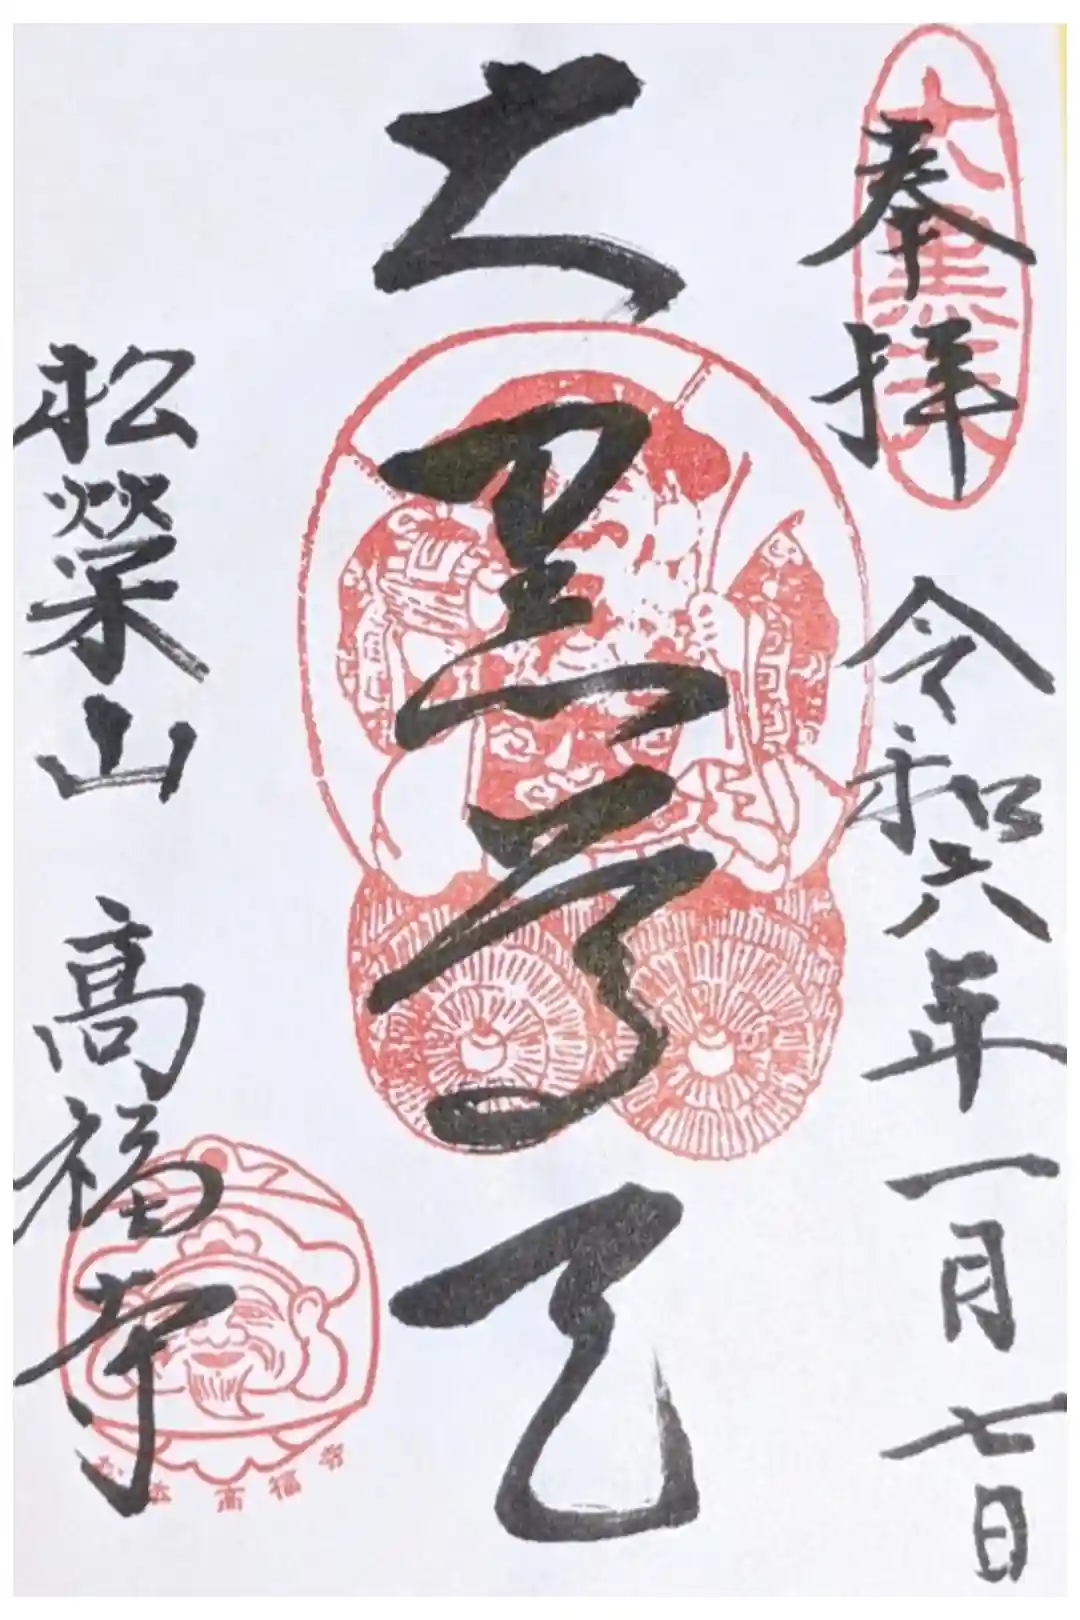 大黒天
奉拝
令和六年一月七日
大黒尊天
松榮山 高福寺
高福寺